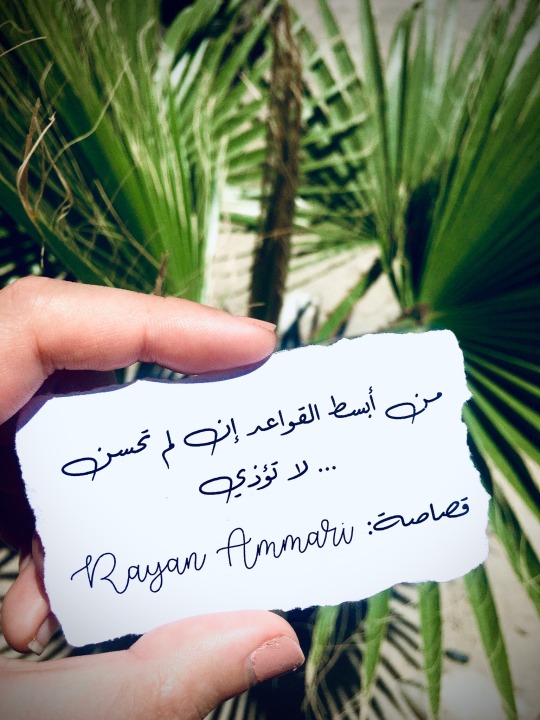 من أبسط القواعد إن لم تحسن
... لا تؤذي
قصاصة: Rayan Ammari